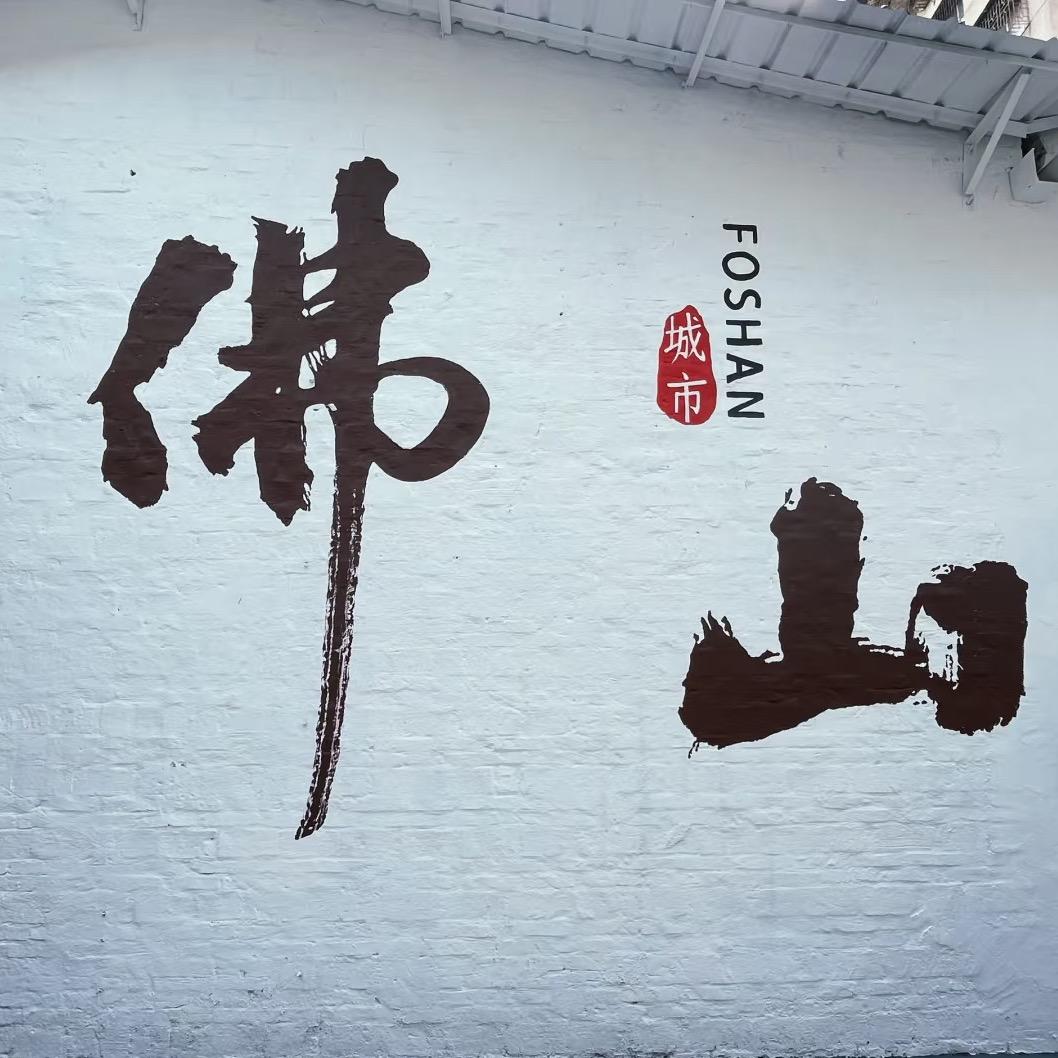 佛山
FOSHAN
城市